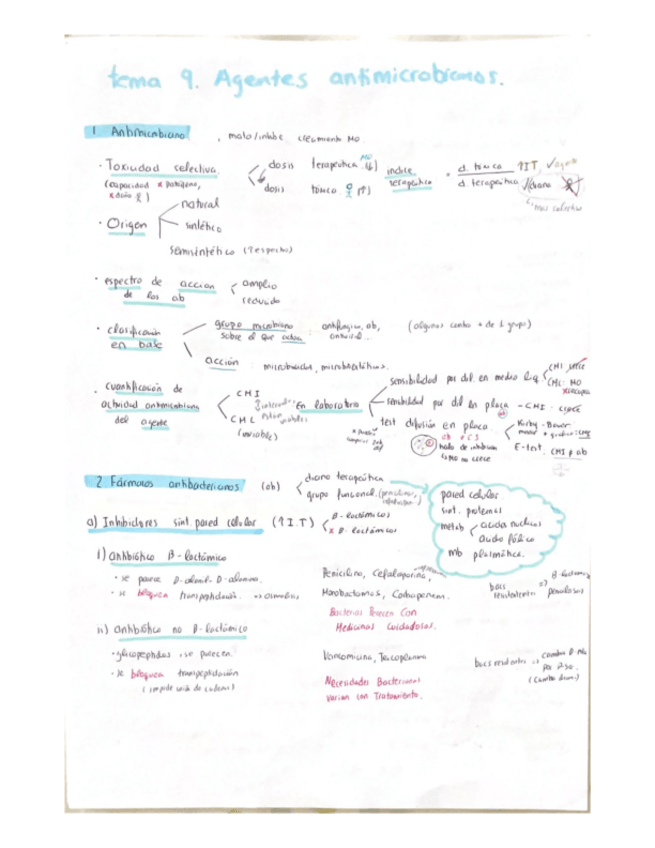 tema 9. Agentes antimicrobianos.
1 Antimicrobiano , mata/inhibe crecimiento MO
· Toxicidad selectiva
(capacidad x patógeno,
x daño)
dosis terapéutica (↓)
dosis tóxica (↑)
indice terapéutico = d. tóxica / d. terapéutica
↑IT,
mas selectivo
· Origen
natural
sintético
semisintético (↑espectro)
· espectro de acción
de los ab
amplio
reducido
· clasificación
en base
grupo microbiano
sobre el que actúa : antifúngico, ab,
antiviral..
(algunos contra + de 1 grupo)
acción : microbicidas, microbiostáticos.
· cuantificación de
actividad antimicrobiana
del agente
CMI
CML
(variable)
En laboratorio
sensibilidad por dil. en medio liq.
CMI
CML: MO
sensibilidad por dil en placa - CMI
test difusión en placa.
halo de inhibición
Kirby-Bauer
E-test. CMI ab
2 Fármacos antibacterianos (ab)
diana terapéutica
grupo funcional.
pared celular
sint. proteinas
metab
acido nucleico
acido fólico
mb plasmática.
a) Inhibidores sint. pared celular (↑ I.T)
β-lactámicos
x β-lactámicos
i) antibiótico β-lactámico
· se parece D-alanil-D-alanina.
· se bloquea transpeptidación.
Penicilina, Cefalosporina,
Monobactamas, Carbapenem.
Bacterias Perecen Con
Medicinas Cuidadosas.
bacs resistentes =>
ii) antibiótico no β-lactámico
· glicopeptidos , se parecen.
· se bloquea transpeptidación
(impide unión de cadenas)
Vancomicina, Teicoplanina
Necesidades Bacterianas
Varian con Tratamiento.
bacs resistentes